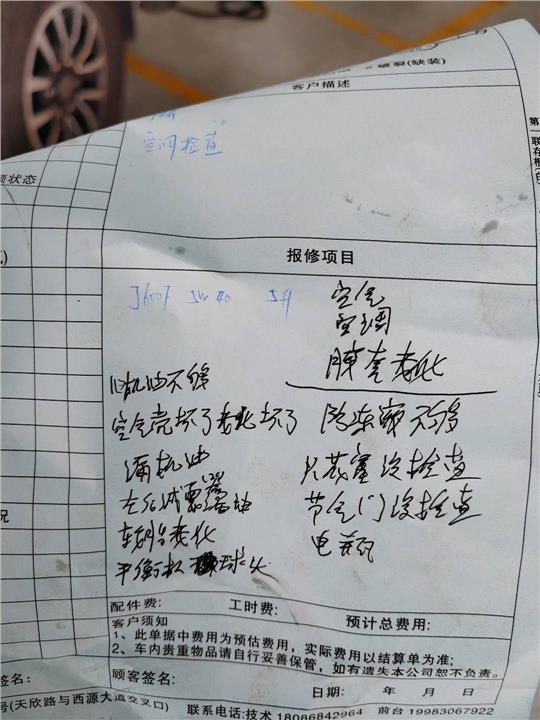 破裂(缺装)
客户描述
空调检查
须状态
报修项目
5W 40
空气
空调
胰套老化
旧机油不够
空气壳坏了老化坏了
防冻液不够
漏机油
火花塞没检查
左右减震漏油
节气门没检查
老化
电瓶
平衡杆 球头
况
配件费:
工时费:
预计总费用:
客户须知
1、此单据中费用为预估费用，实际费用以结算单为准;
2、车内贵重物品请自行妥善保管，如有遗失本公司恕不负责。
签名:
顾客签名:
日期: 年 月 日
号(天欣路与西源大道交叉口)
联系电话:技术 18086842964 前台 19983067922